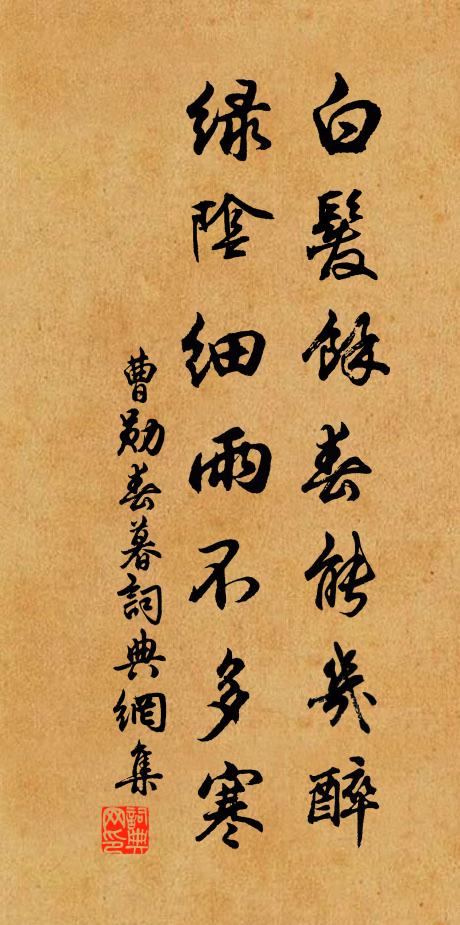 白髮餘春能幾醉
綠陰細雨不多寒
曹勛春暮詞典網集
詞典網印